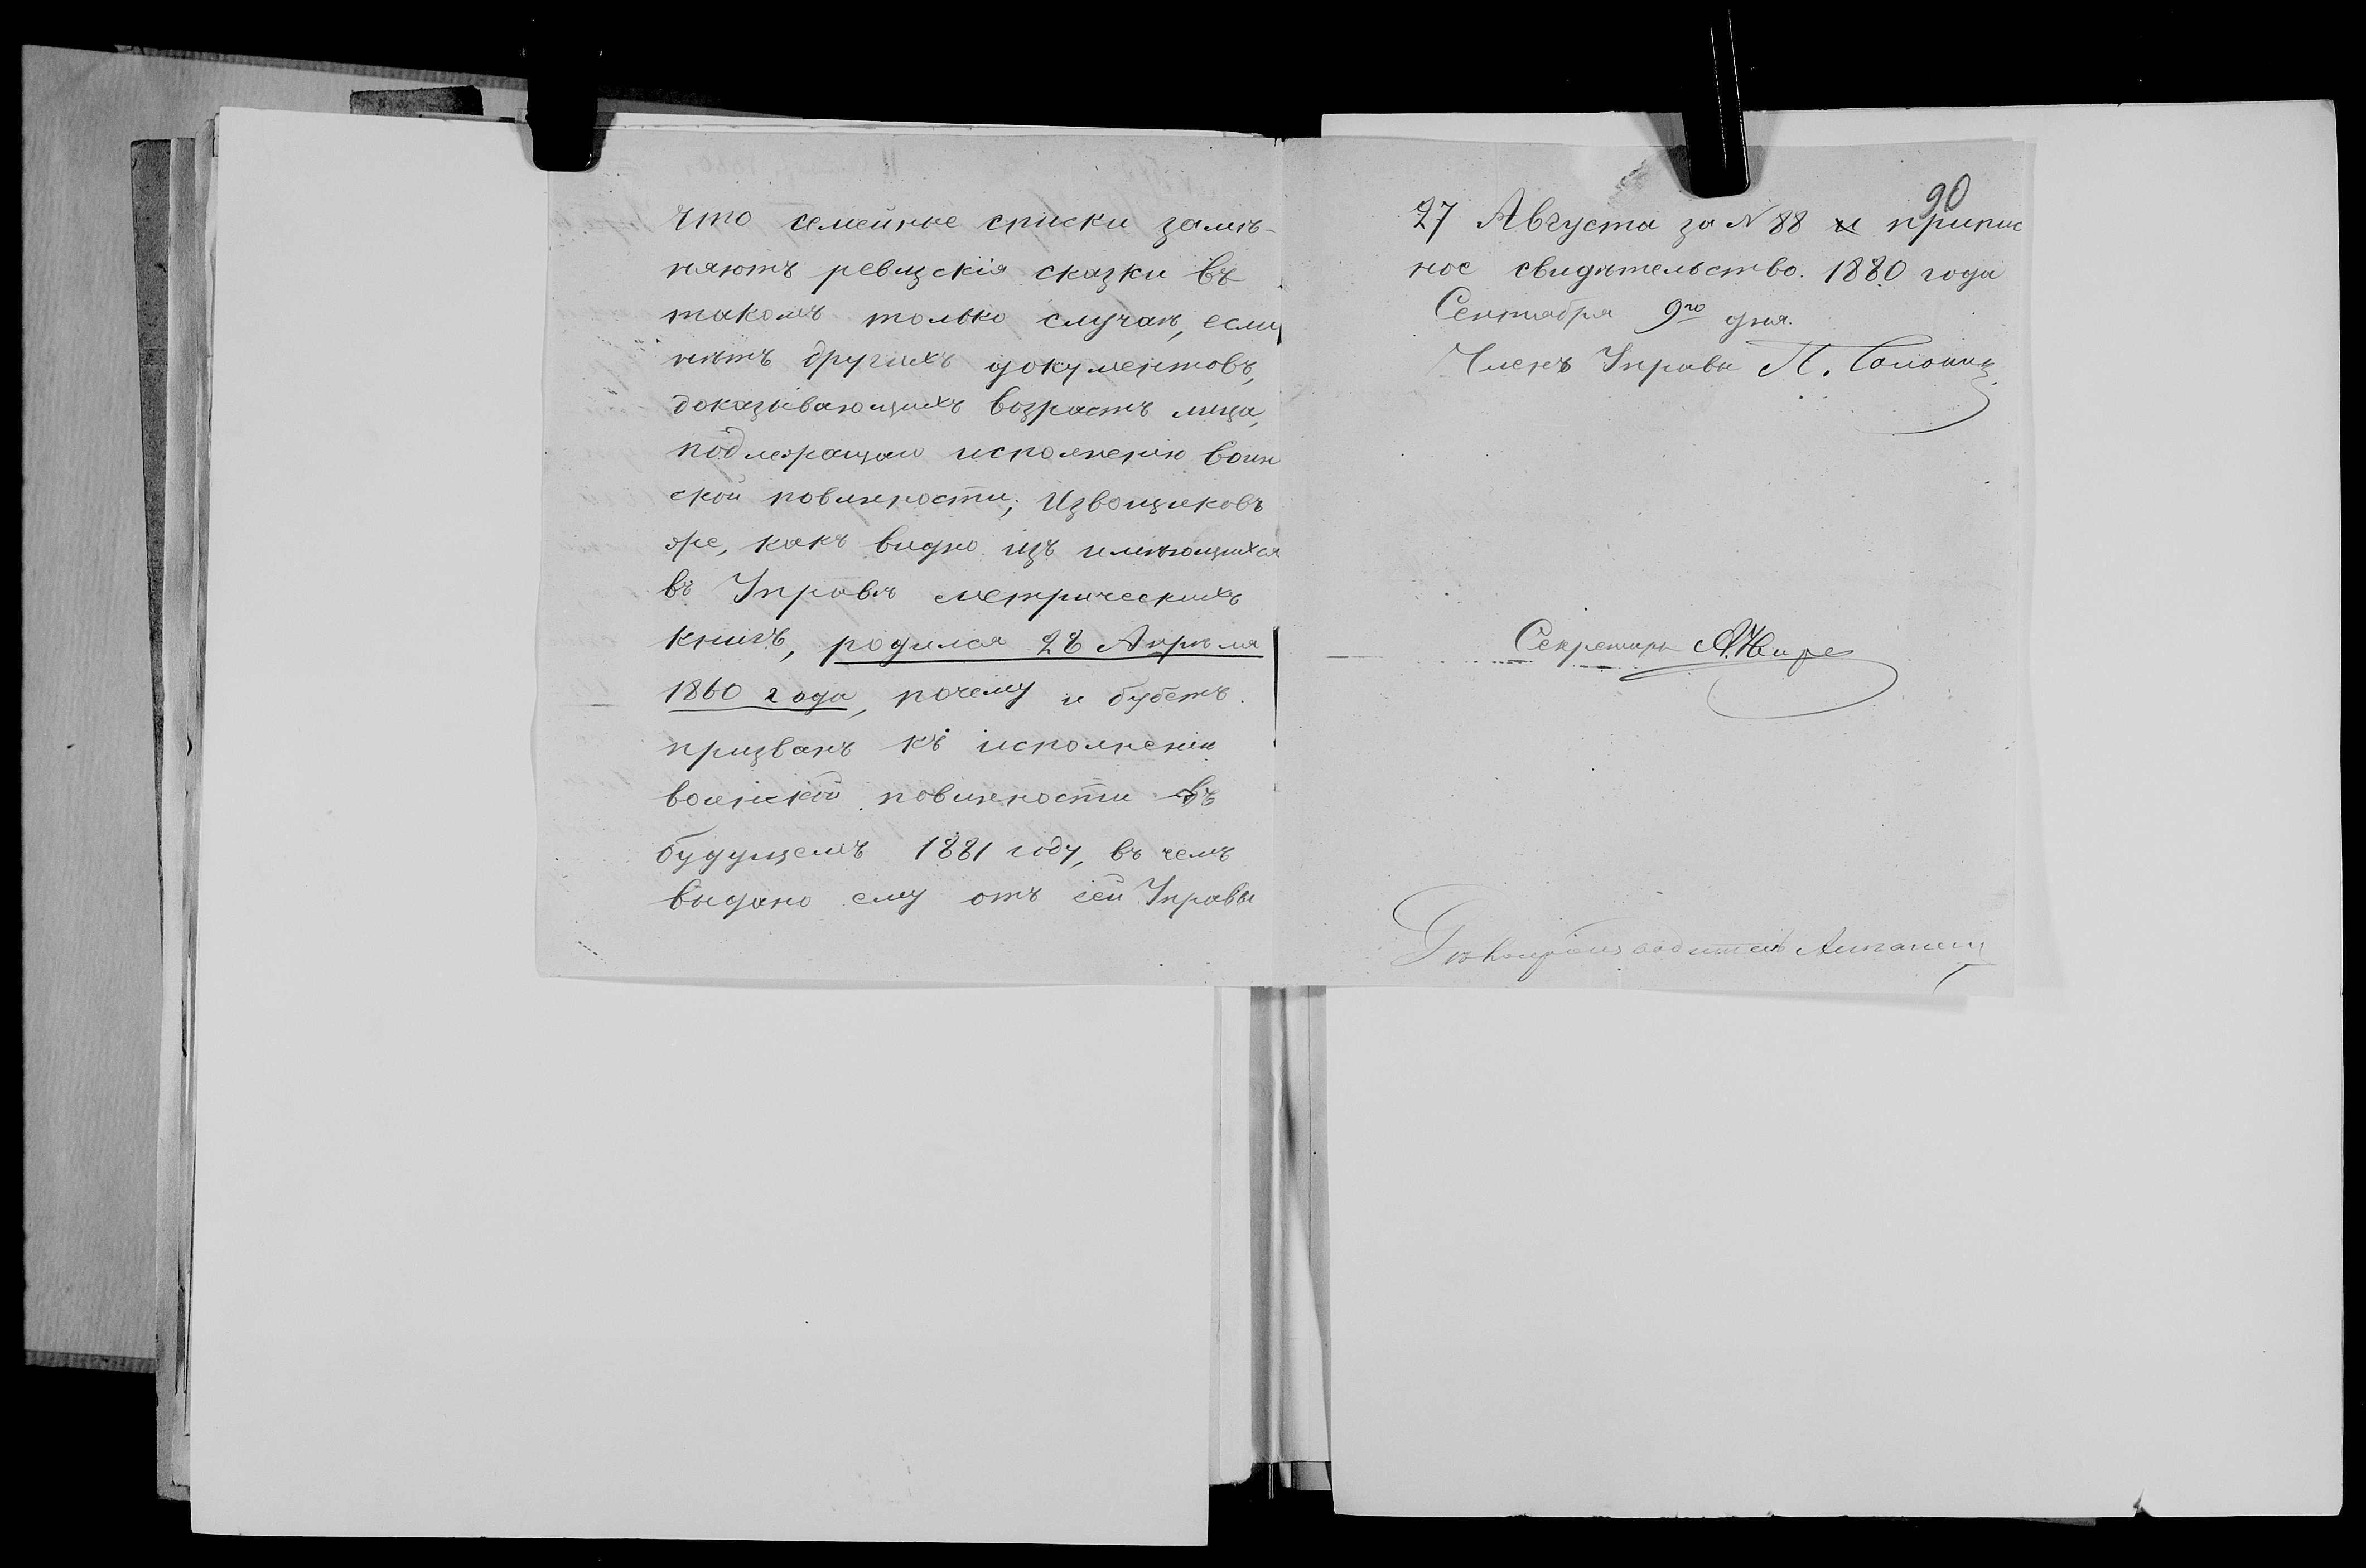 что семейные списки замѣ-
няютъ ревизскія сказки въ
такомъ только случаѣ, если
нѣтъ другихъ документовъ,
доказывающихъ возрастъ лица,
подлежащаго исполненію воин
ской повинности; Извощиковъ
же, какъ видно изъ имѣющихся
въ Управѣ метрическихъ
книгъ, родился 28 Апрѣля
1860 года, почему и будетъ
призванъ къ исполненію
воинской повинности въ
будущемъ 1881 году, въ чемъ
выдано ему отъ сей Управы
90
27 Августа за № 88 и припис
ное свидѣтельство. 1880 года
Сентября 9го дня.
Членъ Управы П.
Секретарь
Дѣлопроизводитель